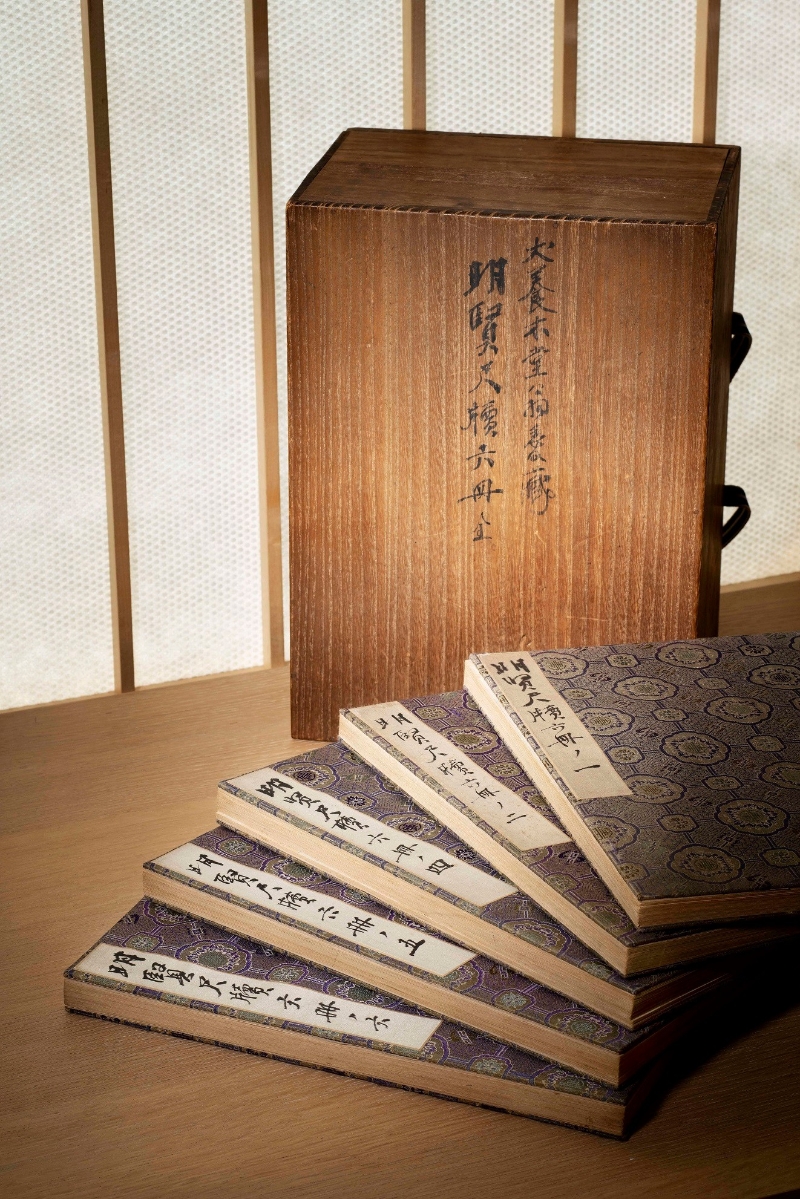 犬養木堂公 藏
明賢尺牘六冊全
明賢尺牘六冊ノ一
明賢尺牘六冊ノ二
明賢尺牘六冊ノ四
明賢尺牘六冊ノ五
明賢尺牘六冊ノ六